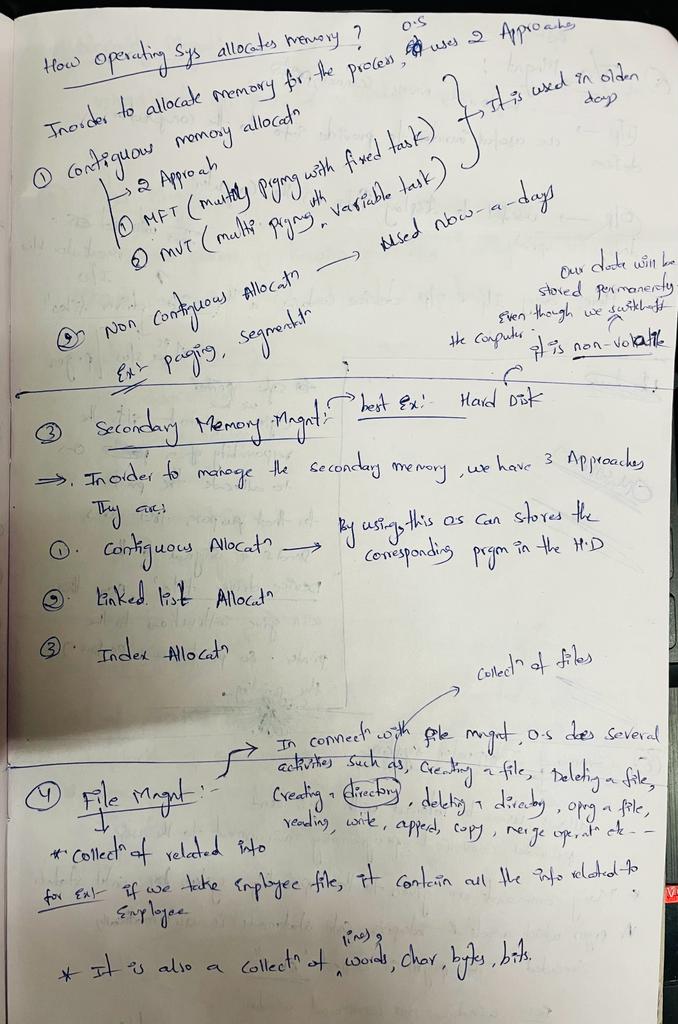 How Operating Sys allocates memory?
Inorder to allocate memory for the process, O.S uses 2 Approaches
① Contiguous memory allocatn
→ 2 Approah
① MFT (multiy prgmg with fixed task)
② MVT (multi prgmg with variable task)
→ It is used in olden
days
② Non Contiguous Allocatn → Used now-a-days
Ex:- paging, segmentatn
Our data will be
stored permanently
Even though we switchoff
the computer.
it is non-volatile
③ Secondary Memory Mngnt:- → best Ex:- Hard Disk
⇒. Inorder to manage the secondary memory, we have 3 Approaches
They are:
①. Contiguous Allocatn → By using, this OS can stores the
corresponding prgm in the H.D
②. Linked list Allocatn
③. Index Allocatn
Collectn of files
④ File Mngnt:- → In connectn with file mngnt, O.S does several
activities such as, Creating a file, Deleting a file,
Creating a directory, deleting a directory, opng a file,
reading, write, append, copy, merge operatn etc--
* Collectn of related info
for Ex:- if we take Employee file, it contain all the info related to
Employee
* It is also a collectn of lines, words, char, bytes, bits.